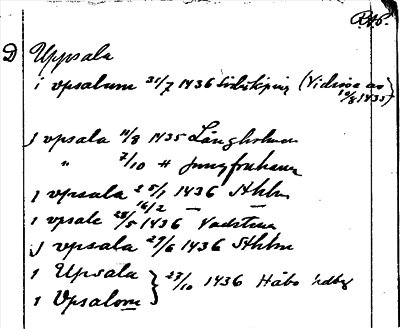 D Uppsala
i vpsalum 31/7 1436 Söderköping (Vidisse av
10/8 1435)
j vpsala 11/8 1435 Långholmen
" 7/10 Jungfruhamn
j vpsala 25/1 1436 Sthlm
16/2 — —
i vpsale 28/5 1436 Vadstena
j vpsala 29/6 1436 Sthlm
i Upsala } 23/10 1436 Håbo
i Vpsalom